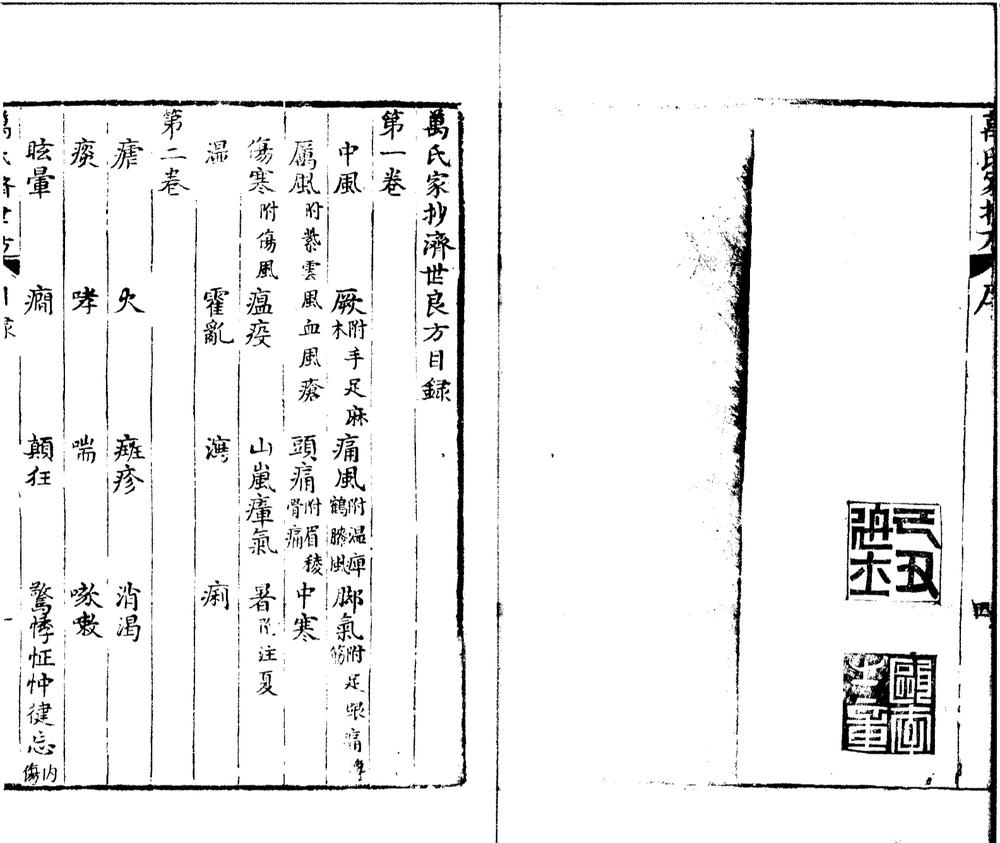 己丑進士
四
萬氏家抄濟世良方目録
第一卷
中風 厥附手足麻木 痛風附温痺鶴膝風 脚氣附足跟痛
厲風附紫雲風血風瘡 頭痛附眉稜骨痛 中寒
傷寒附傷風 瘟疫 山嵐瘴氣 暑附注夏
濕 霍亂 瀉 痢
第二卷
瘧 火 癍疹 消渴
痰 哮 喘 咳嗽
眩暈 癎 顛狂 驚悸怔忡健忘内傷